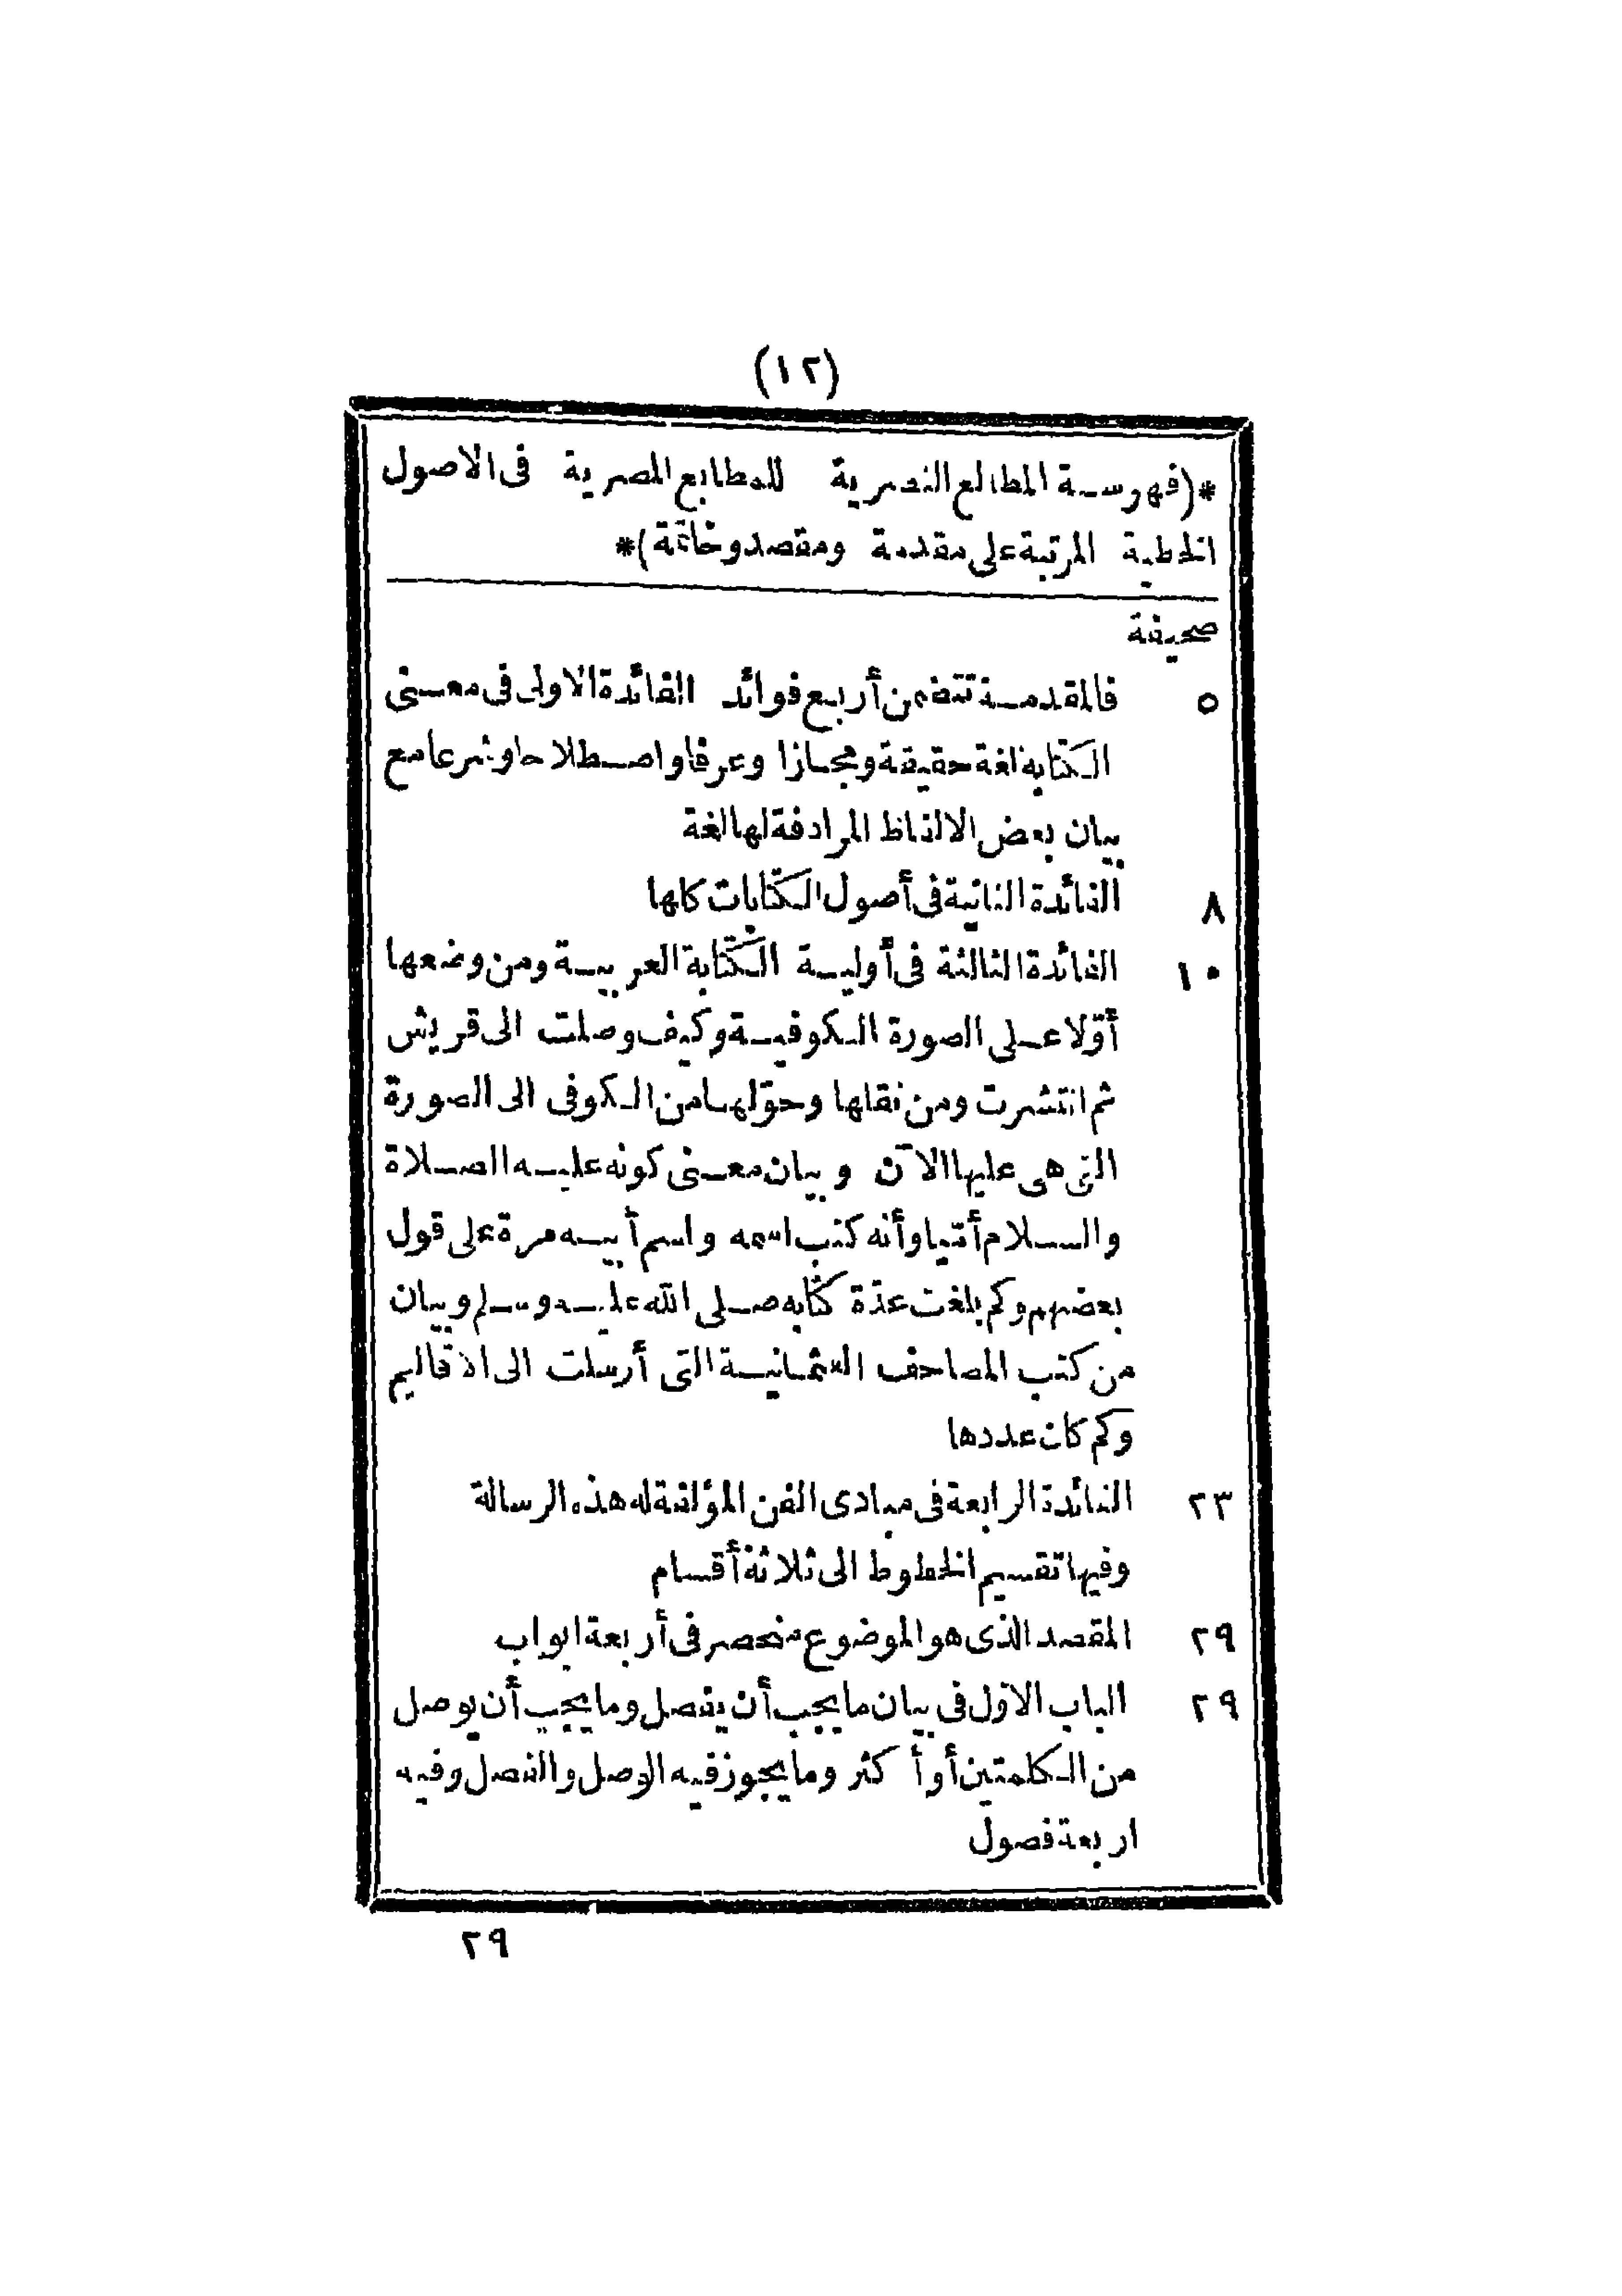 (١٢)
*(فهرسة المطالع النصرية للمطابع المصرية فى الاصول
الخطية المرتبة على مقدمة ومقصد وخاتمة)*
صحيفة
٥ فالمقدمة تتضمن أربع فوائد الفائدة الاولى فى معنى
الكتابة لغة حقيقة ومجازا وعرفا واصطلاحا وشرعا مع
بيان بعض الالفاظ المرادفة لها لغة
٨ الفائدة الثانية فى أصول الكتابات كلها
١٠ الفائدة الثالثة فى أولية الكتابة العربية ومن وضعها
أوّلا على الصورة الكوفية وكيف وصلت الى قريش
ثم انتشرت ومن نقلها وحوّلها من الكوفى الى الصورة
التى هى عليها الآن وبيان معنى كونه عليه الصلاة
والسلام أمّيا وأنه كتب اسمه واسم أبيه مرة على قول
بعضهم وكم بلغت عدّة كتّابه صلى الله عليه وسلم وبيان
من كتب المصاحف العثمانية التى أرسلت الى الاقاليم
وكم كان عددها
٢٣ الفائدة الرابعة فى مبادى الفن المؤلفة له هذه الرسالة
وفيها تقسيم الخطوط الى ثلاثة أقسام
٢٩ المقصد الذى هو الموضوع منحصر فى أربعة ابواب
٢٩ الباب الاوّل فى بيان ما يجب أن يفصل وما يجب أن يوصل
من الكلمتين أو أكثر وما يجوز فيه الوصل والفصل وفيه
اربعة فصول
٢٩